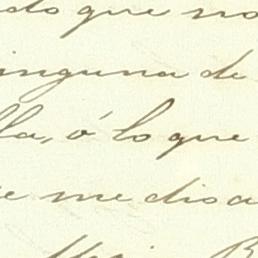 do que no
inguna de
lla, ó lo que
e me dio a